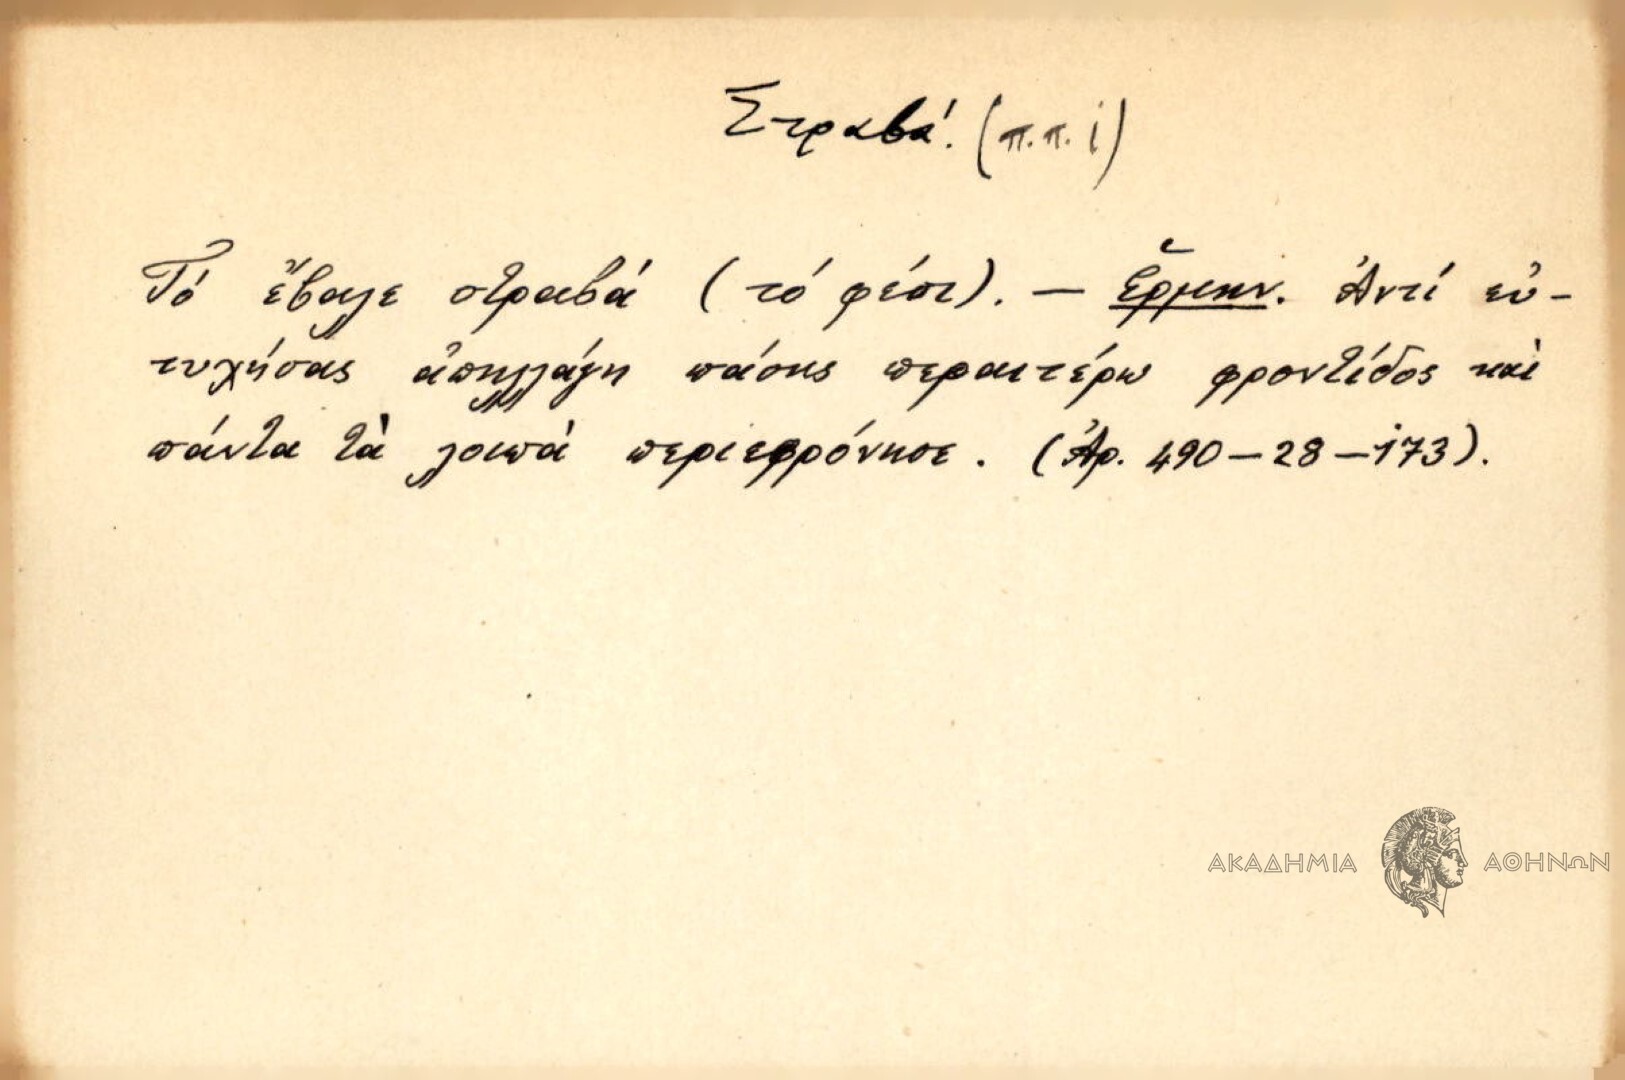 Στραβά. (π.π. ί)
Τό ἔβαλε στραβά (τό φέσι). — Ἑρμην. Ἀντί εὐ-
τυχήσας ἀπηλλάγη πάσης περαιτέρω φροντίδος καὶ
πάντα τὰ λοιπά περιεφρόνησε. (Ἀρ. 490-28-173).
ΑΚΑΔΗΜΙΑ ΑΘΗΝΩΝ